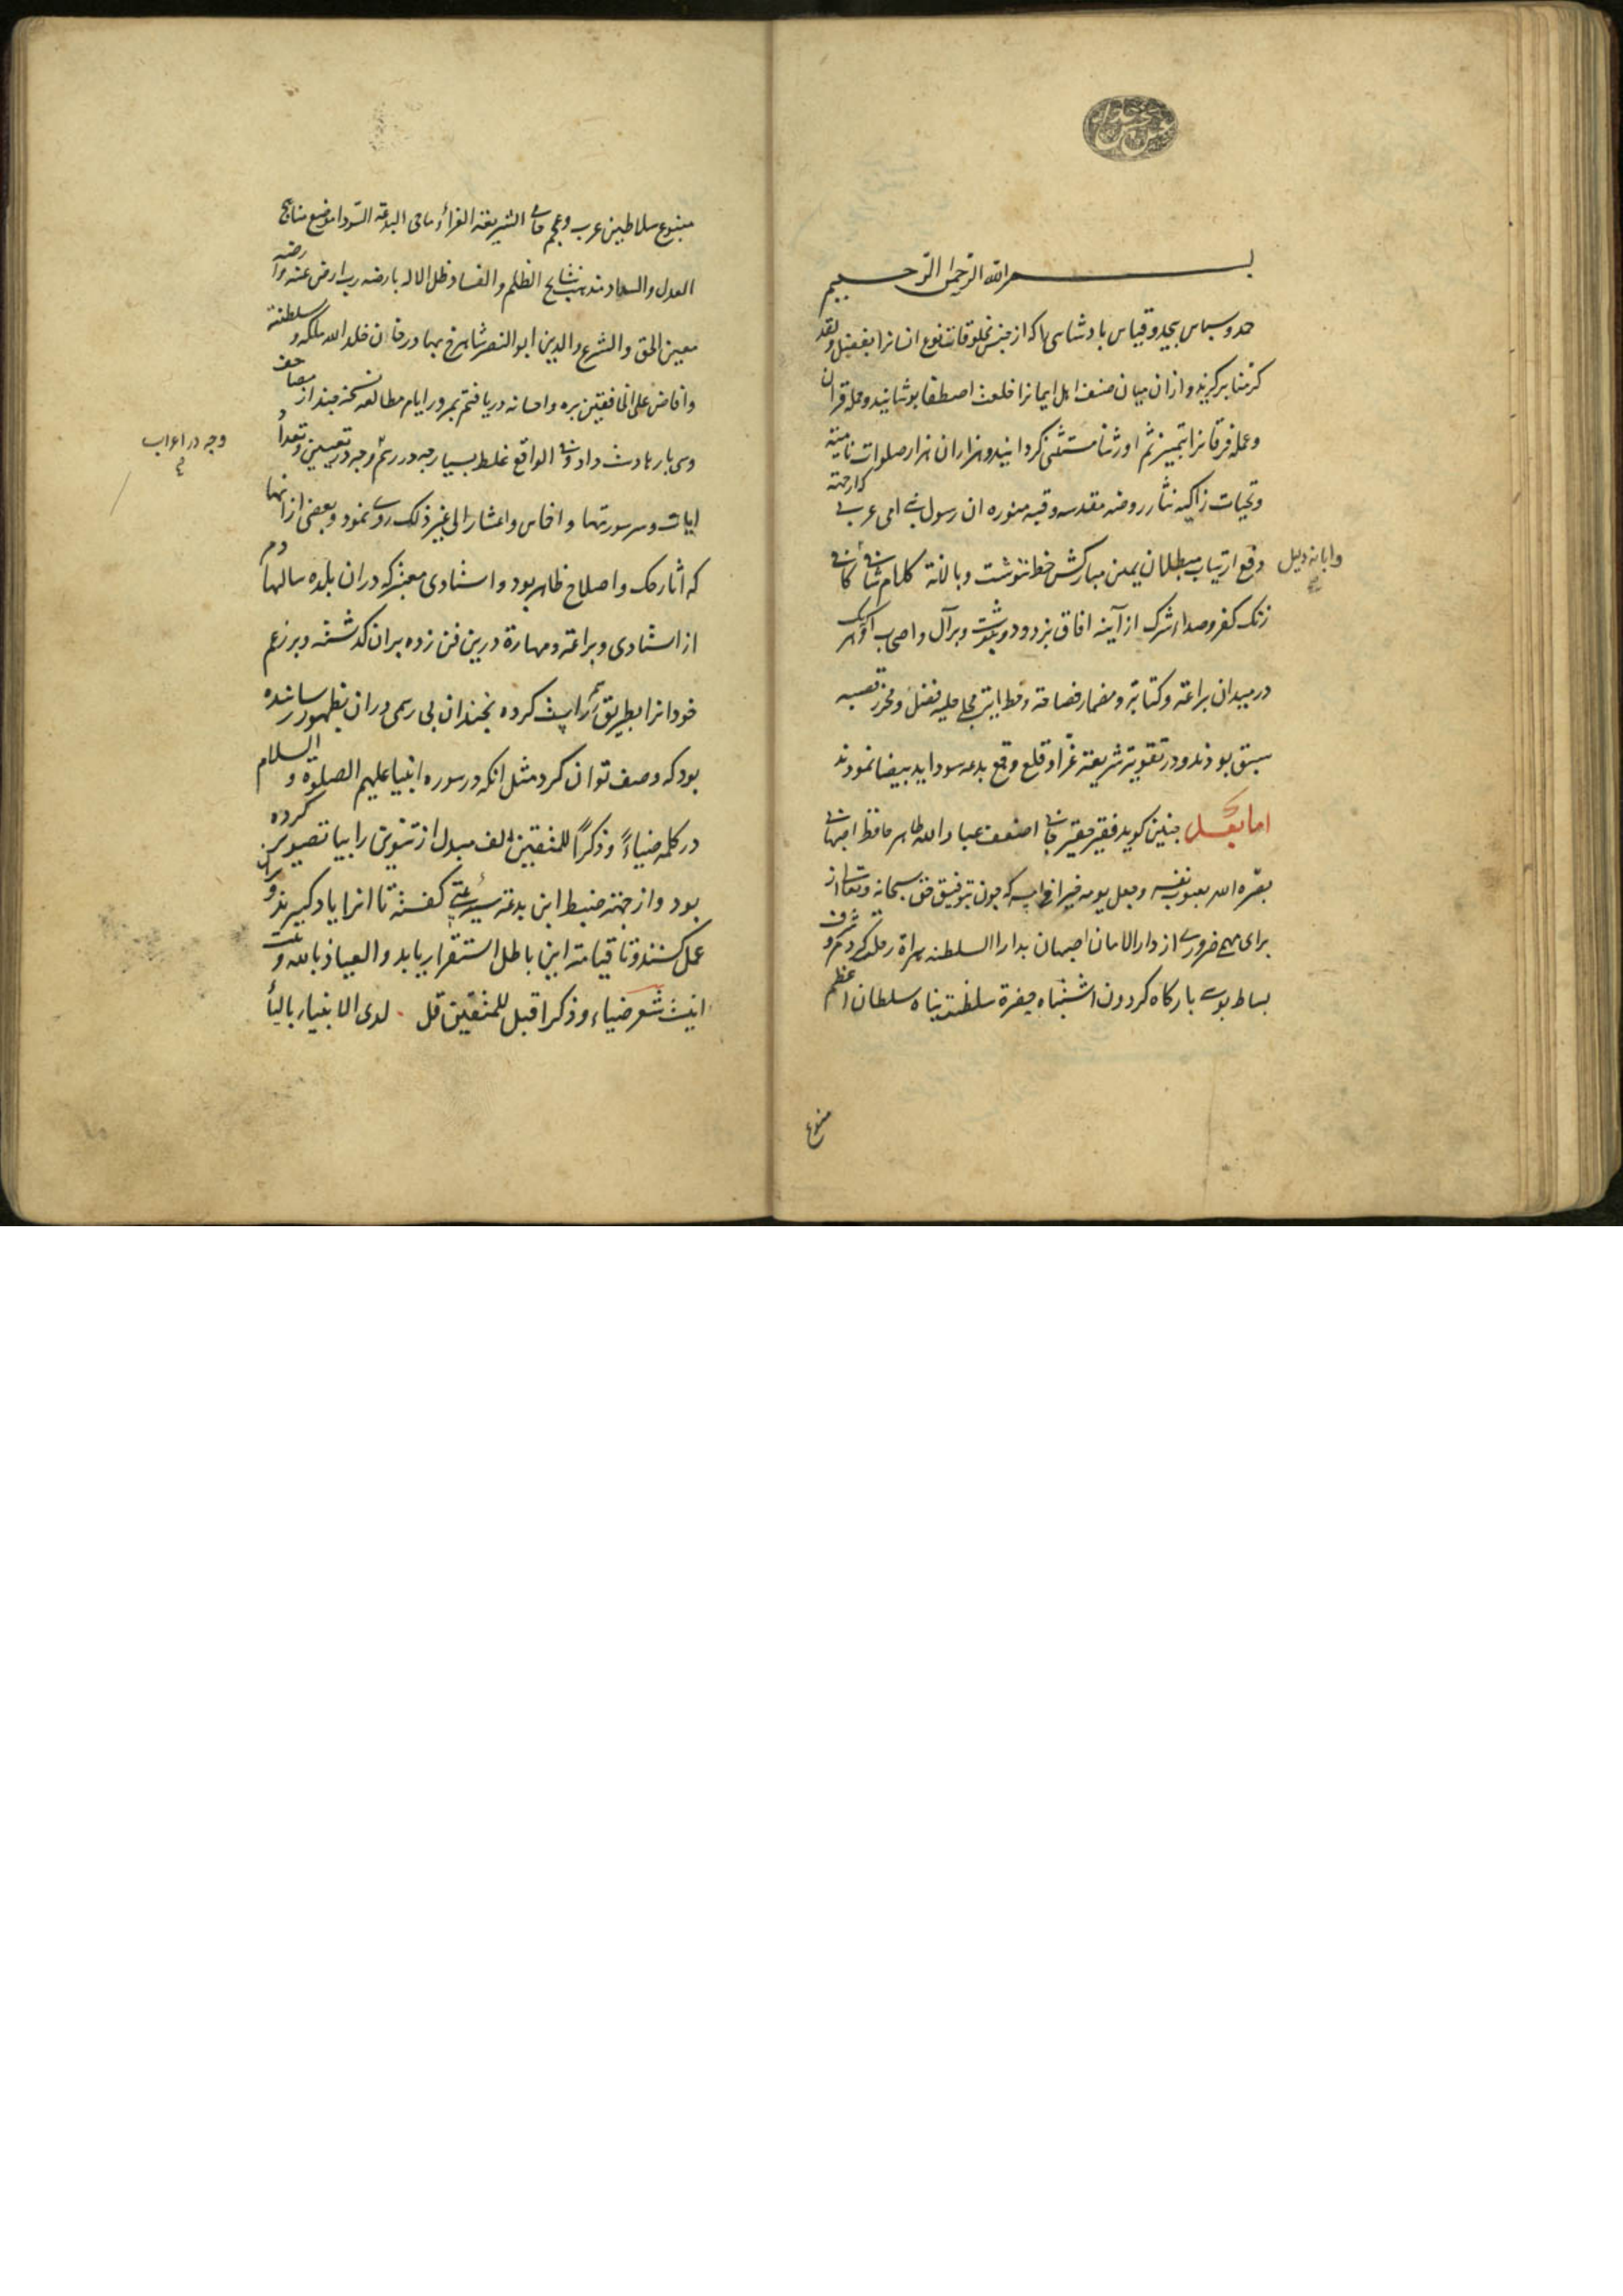 بسم الله الرحمن الرحیم
حمد و سپاس بیحد و قیاس پادشاهی را که از جنس مخلوقات نوع انسانرا بفضل ولقد
کرمنا برکزید و از ان میان صنف اهل ایمانرا خلعت اصطفا پوشانید و حمله قران
وعمله فرقانرا بتمییز ثم اورثنا مستثنی کردانید و هزاران هزار صلوات نامیة
وتحیات زاکیه نثار روضه مقدسه و قبه منوره ان رسول امی عربی که از جهته
دفع ارتیاب مبطلان بیمین مبارکش خط ننوشت و بالنة کلام
وابانة دلیل
زنک کفر و صداء شرک از آینه افاق بزدود و بر آل و اصحاب او که هریک
در میدان براعة و کتابة و مضمار فصاحة و خطابة مجلی حلبه فضل و محرز قصبه
سبق بودند و در تقویة شریعة غرّا و قلع و قمع بدعه سودا ید بیضا نمودند
اما بعد چنین کوید فقیر حقیر جانی اضعف عباد الله طاهر حافظ اصبهانی
بصّره الله بعیوب نفسه وجعل یومه خیرا من امسه که چون بتوفیق حق سبحانه وتعالی از
برای مهمی ضروری از دار الامان اصبهان بدار السلطنه هراة رحلت کردم و شرف
بساط بوسی بارکاه کردون اشتباه حضرة سلطنة پناه سلطان اعظم
متبوع
متبوع سلاطین عرب و عجم حامی الشریعة الغراء ماحی البدعة السودا موضع مناهج
العدل والسداد ظل الاله بارضه رب ارض عنه وارضه
معین الحق والشرع والدین ابو النصر شاهرخ بهادر خان خلد الله ملکه و سلطنته
وافاض علی الخافقین بره واحسانه دریافتم بمرور ایام مطالعه نسخه چند از مصاحف
دست داد و فی الواقع غلط بسیار چه در رسم و چه در تعیین و تعداد
وجه در اعراب
ایات و سر سورتها و اخماس و اعشار الی غیر ذلک روی نمود و بعضی از انها
که اثار حک و اصلاح ظاهر بود و استادی معین که در ان بلده سالها دم
از استادی و براعة و مهارة درین فن زده بران کذشته و بزعم
خود انرا بطریق رسم راست کرده بچندان بی رسمی در ان بظهور رسانیده
بود که وصف توان کرد مثل انکه در سوره انبیا علیهم الصلوة و السلام
در کلمه ضیاءً وذکراً للمتقین الف مبدل از تنوین را بیا تصویر کرده
بود و از جهته ضبط این بدعة سیئه بیتی کفته تا انرا یاد کیرند و بران
عمل کنند و تا قیامة این باطل استقرار یابد والعیاذ بالله و بیت
اینست شعر ضیاء وذکرا قبل للمتقین قل لدی الانبیاء بالیا